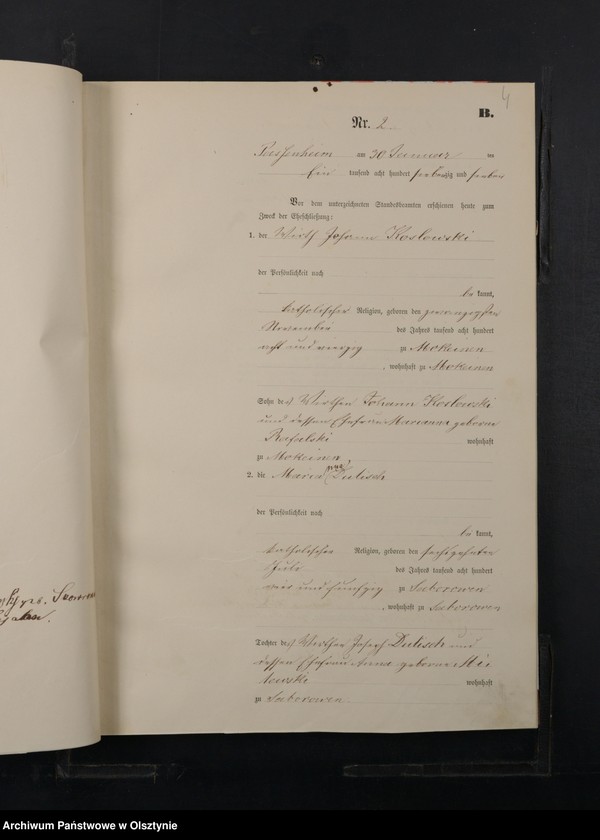 4
B.
Nr. 2
Passenheim am 30 Januar
Ein tausend acht hundert siebenzig und sieben
Vor dem unterzeichneten Standesbeamten erschienen heute zum
Zweck der Eheschließung:
1. der Wirth Johann Koslowski
der Persönlichkeit nach
be kannt,
katholischer Religion, geboren den zwanzigsten
November des Jahres tausend acht hundert
acht und vierzig zu Mokeinen
, wohnhaft zu Mokeinen
Sohn des Wirthen Johann Koslowski
und dessen Ehefrau Marianna geborne
Rafalski wohnhaft
zu Mokeinen
2. die Maria Dulisch
der Persönlichkeit nach
be kannt,
katholischer Religion, geboren den
Juli des Jahres tausend acht hundert
und fünfzig zu Saborowen
, wohnhaft zu Saborowen
Tochter des Wirthen Joseph Dulisch und
dessen Ehefrau Anna geborne
wohnhaft
zu Saborowen
Archiwum Państwowe w Olsztynie